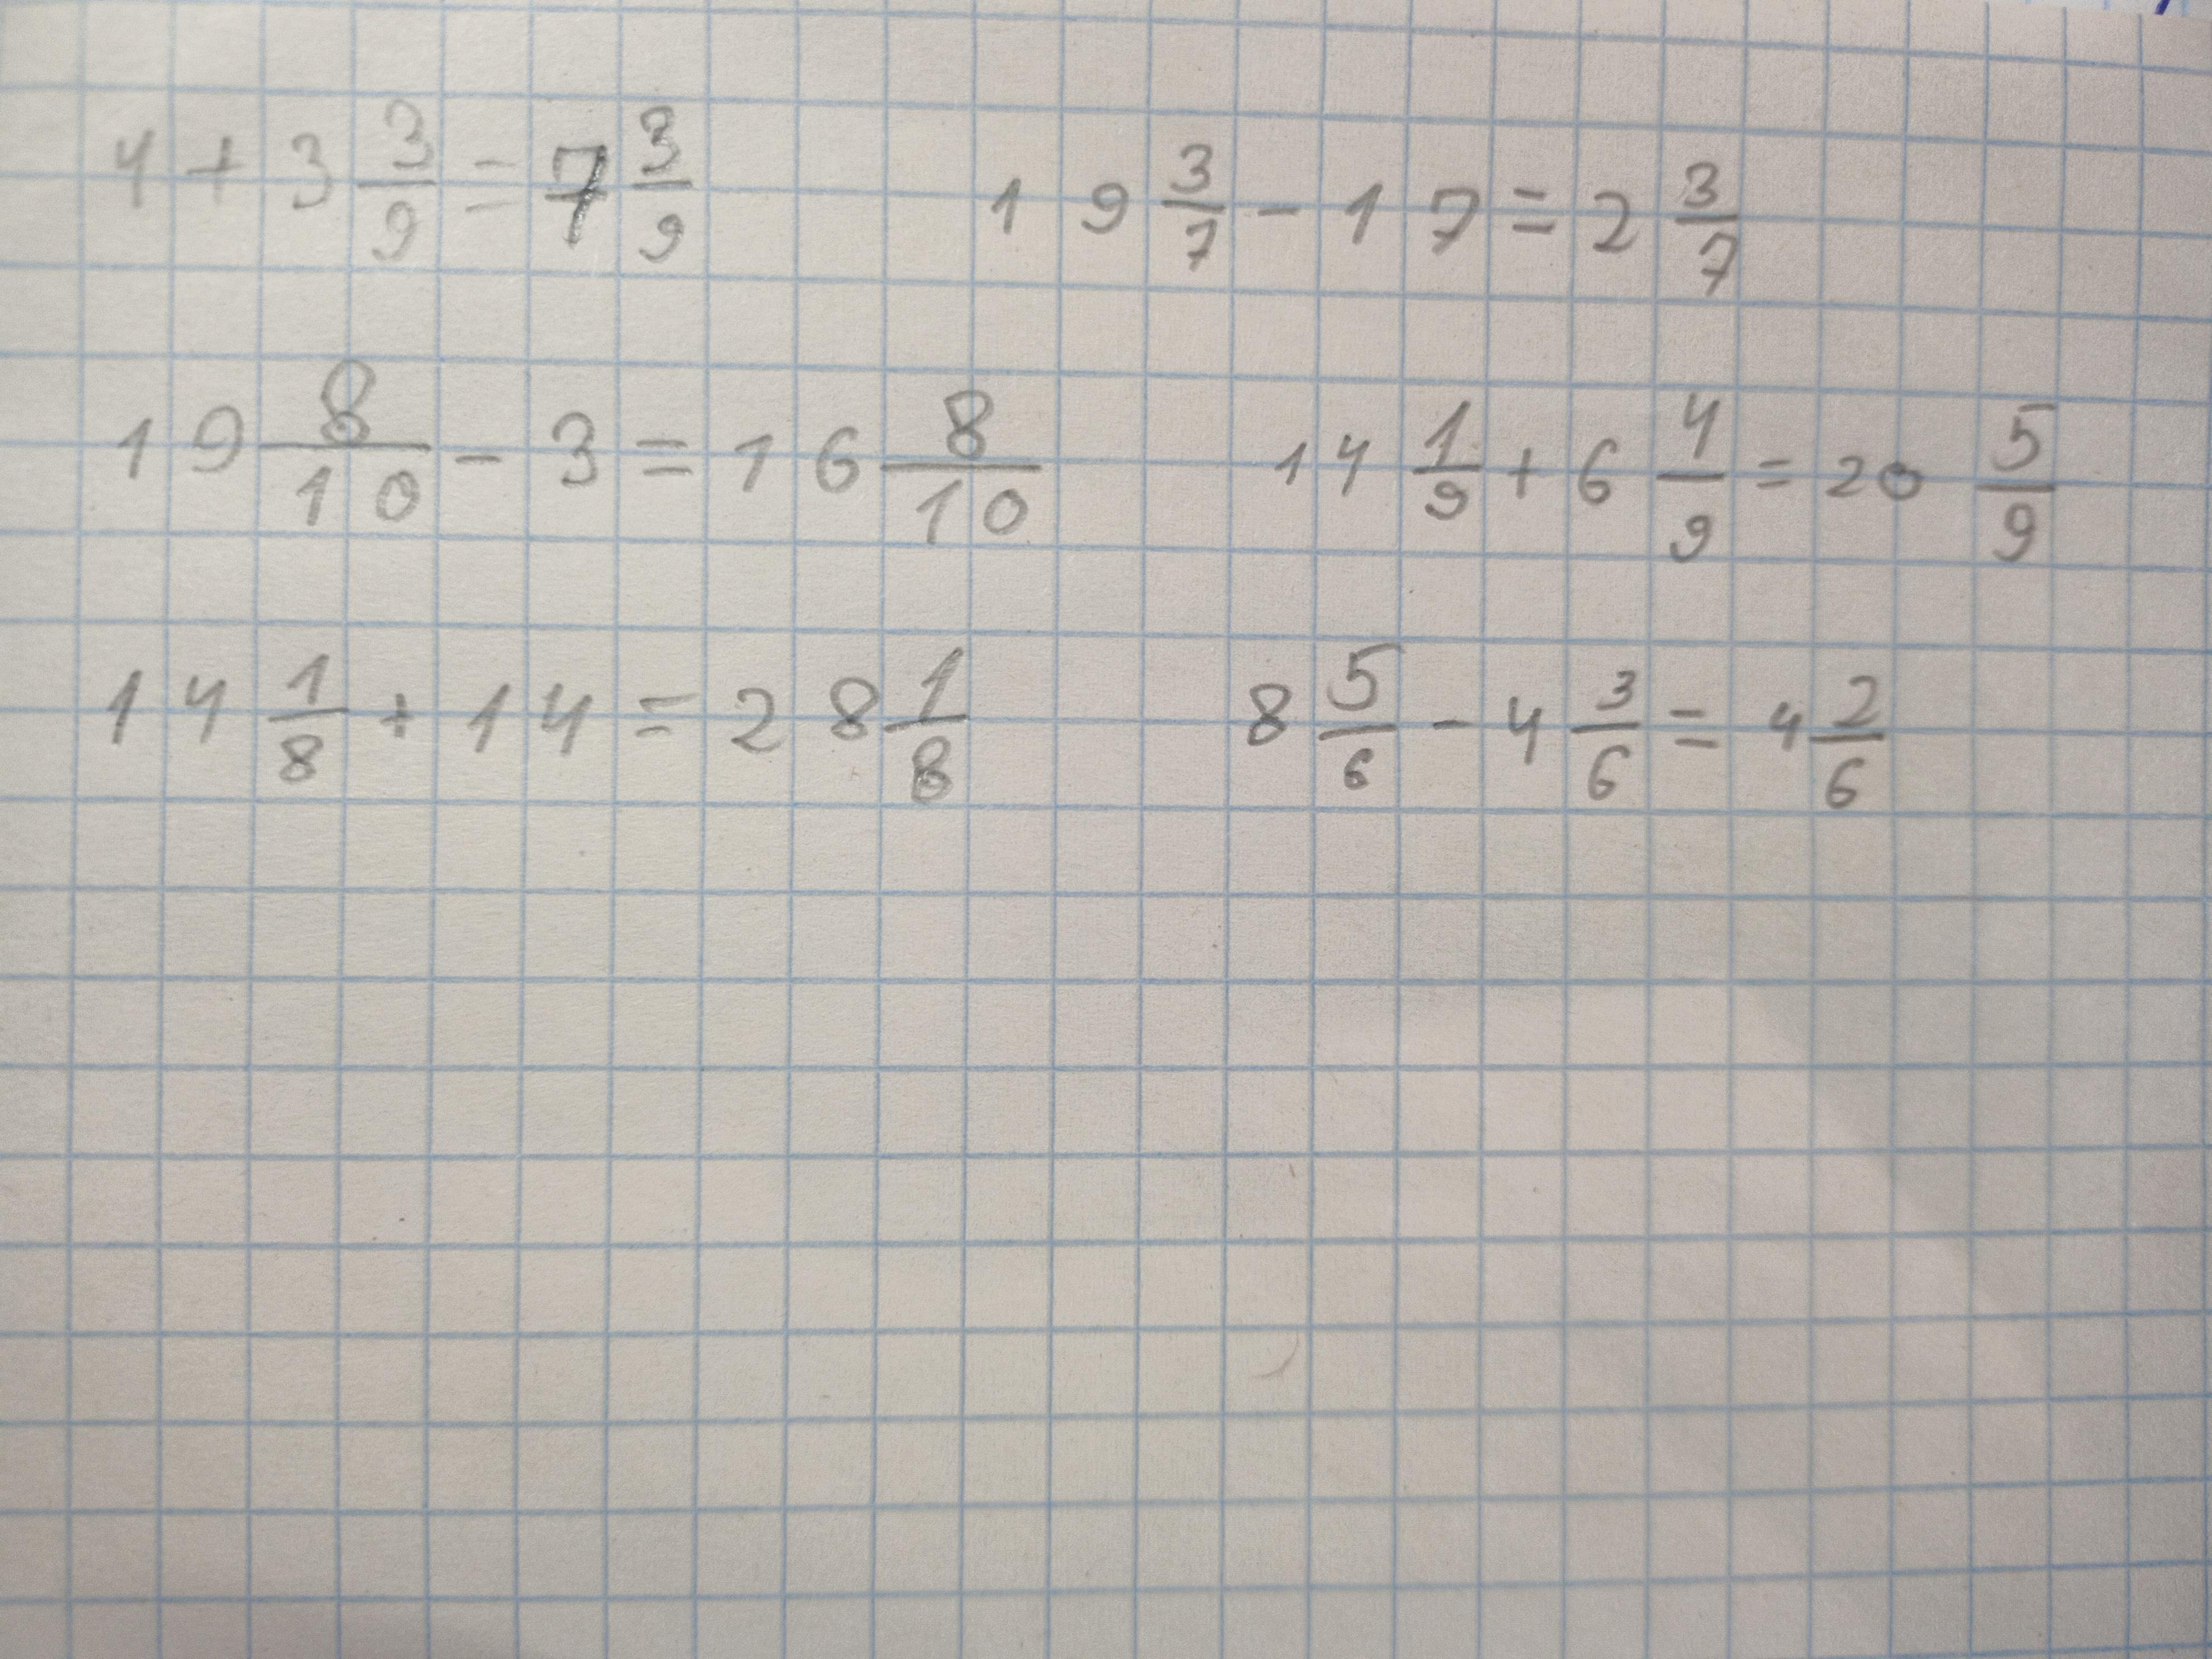 4 + 3 3/9 = 7 3/9    19 3/7 - 17 = 2 3/7
19 8/10 - 3 = 16 8/10    14 1/9 + 6 4/9 = 20 5/9
14 1/8 + 14 = 28 1/8    8 5/6 - 4 3/6 = 4 2/6